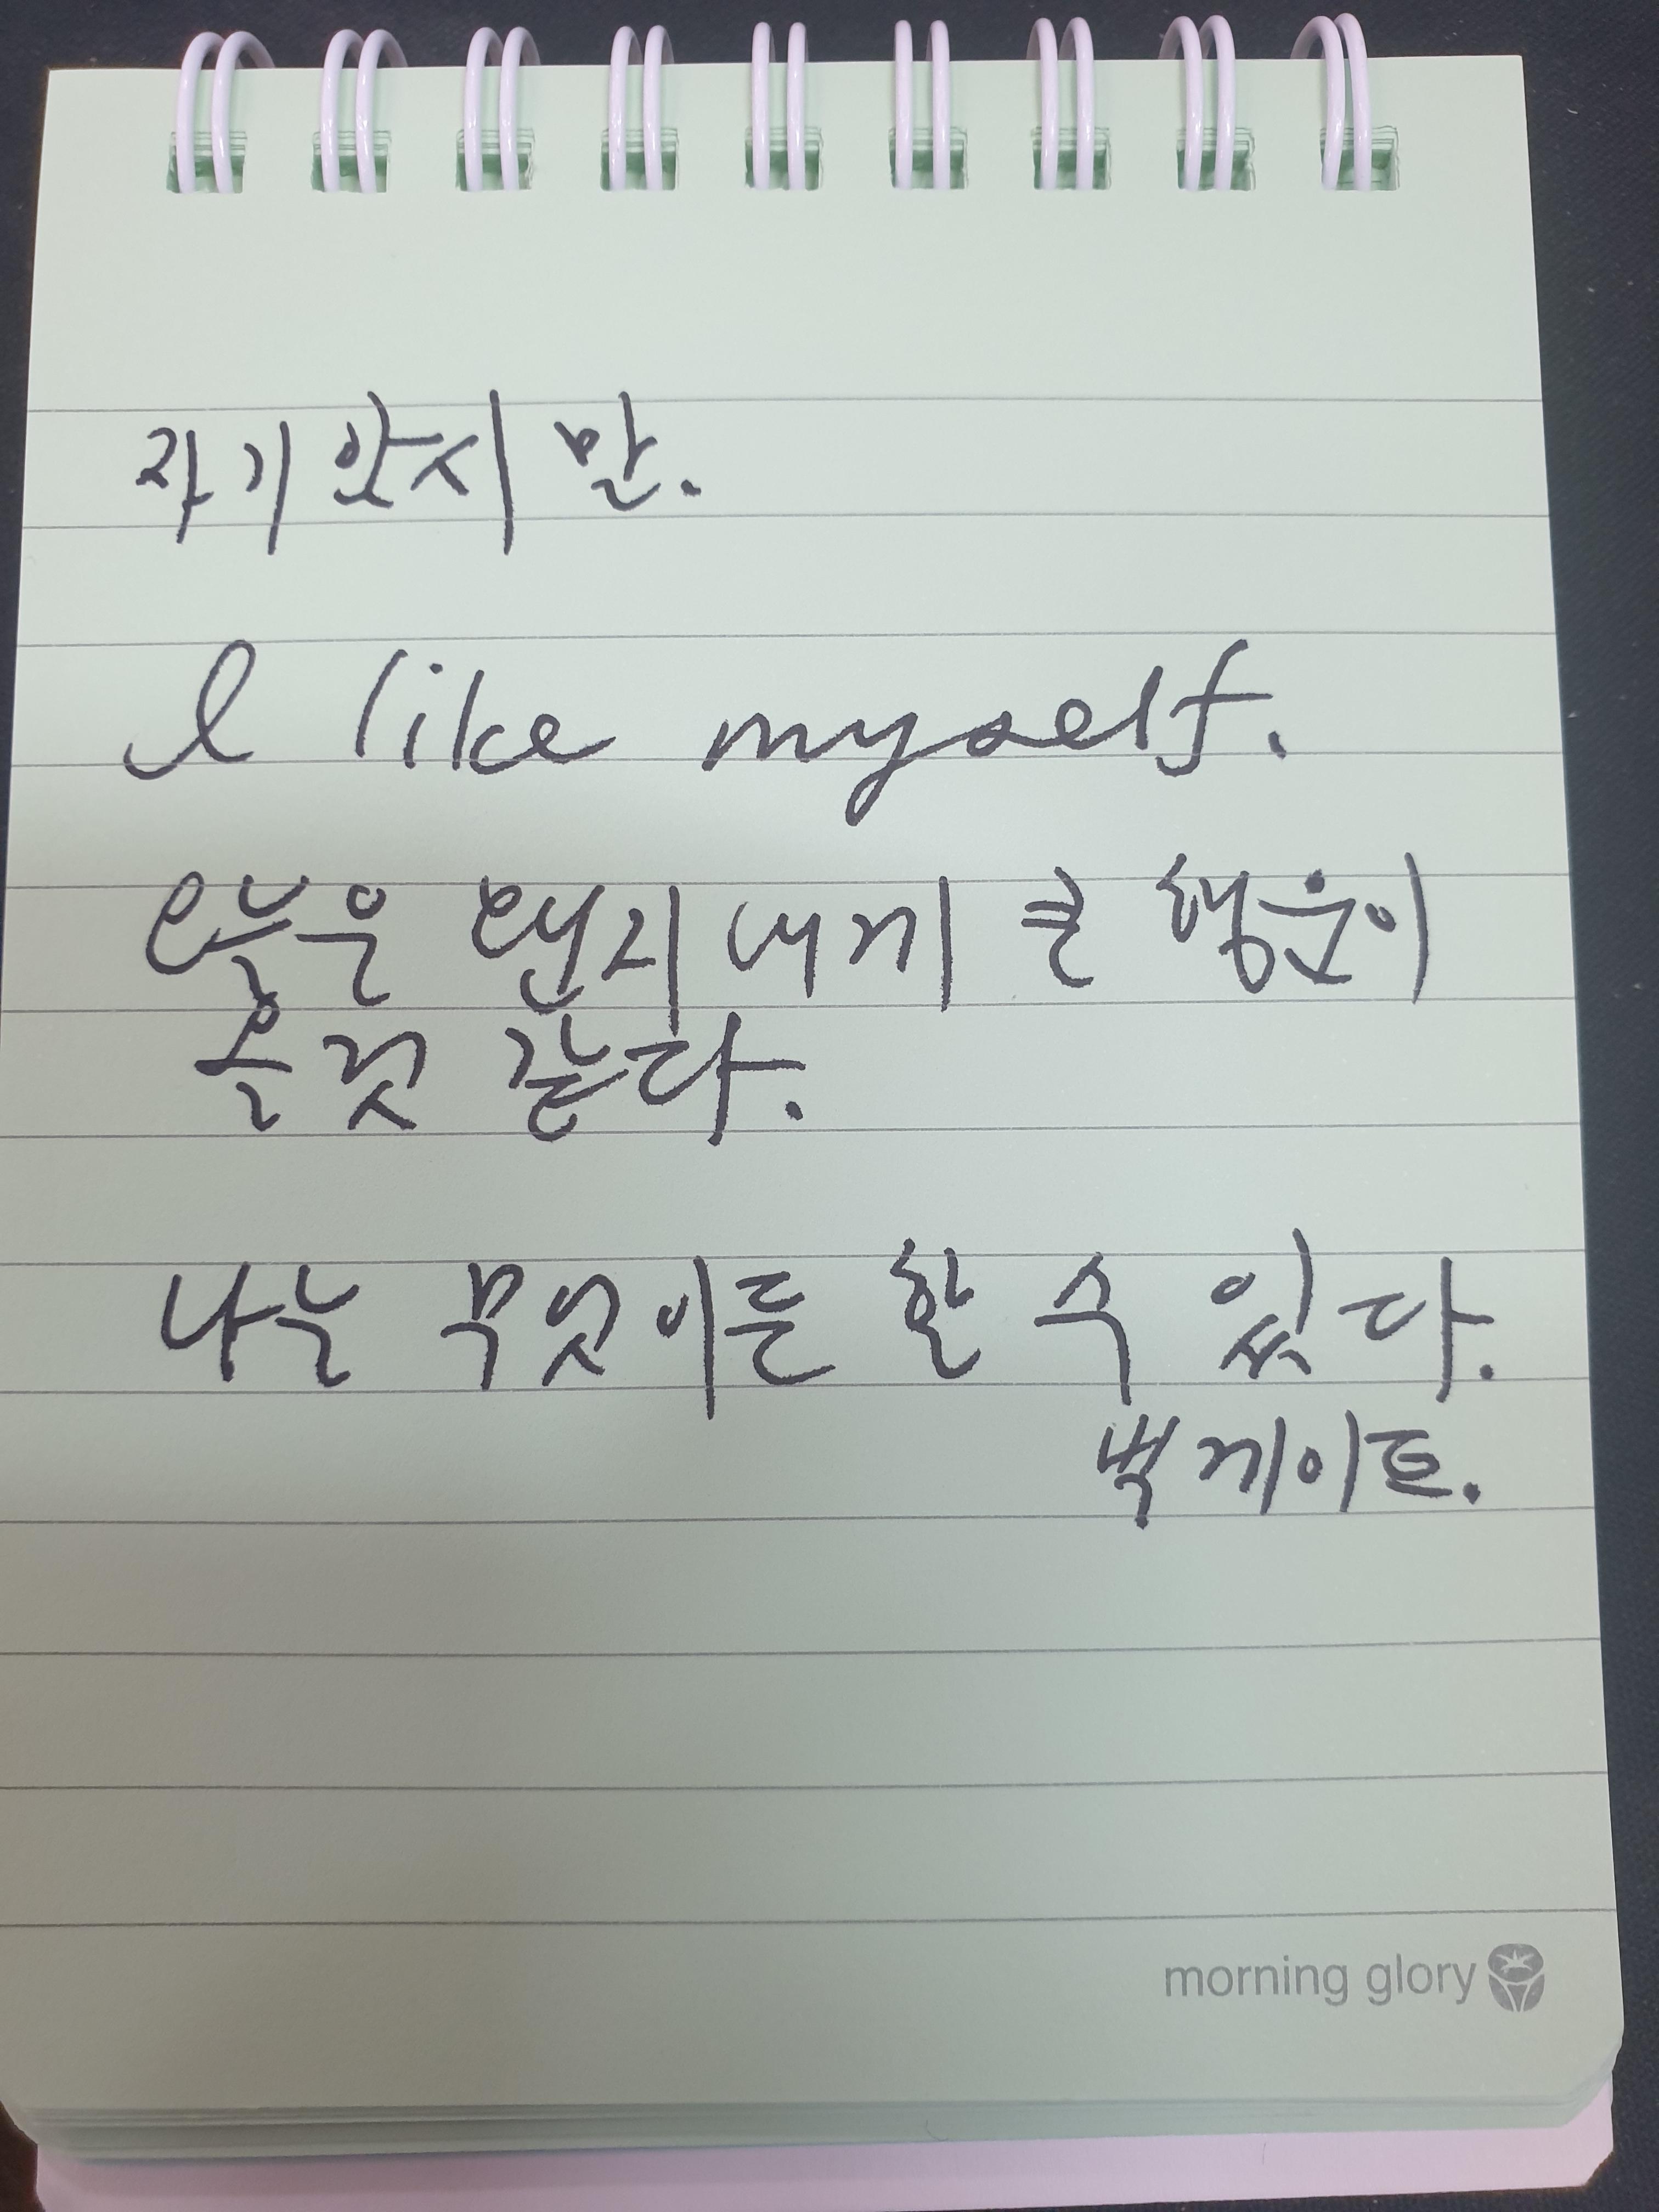 자기 암시 말.
I like myself.
오늘은 왠지 내게 큰 행운이
올것 같다.
나는 무엇이든 할 수 있다.
빌 게이트.
morning glory